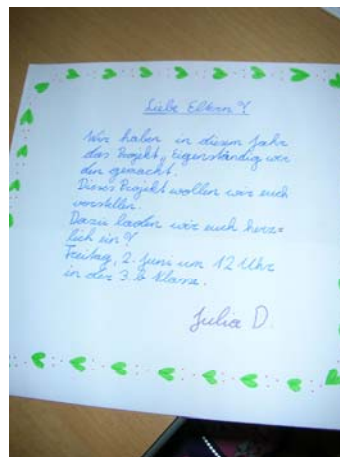 Liebe Eltern!
Wir haben in diesem Jahr
das Projekt, Eigenständig wer
den gemacht.
Dieses Projekt wollen wir euch
vorstellen.
Dazu laden wir euch herz=
lich ein!
Freitag, 2. Juni um 12 Uhr
in der 3. b Klasse.
Julia D.